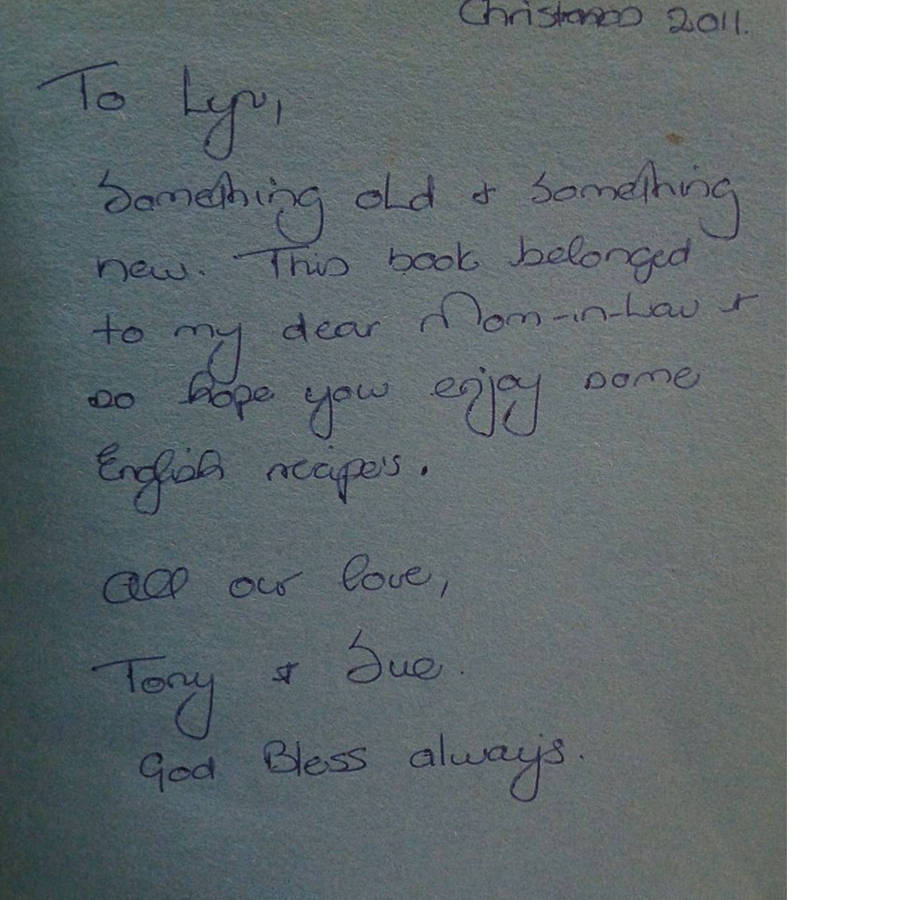 Christmas 2011.
To Lyn,
Something old & something
new. This book belonged
to my dear Mom-in-Law &
so hope you enjoy some
English recipe's.
All our love,
Tony & Sue.
God Bless always.